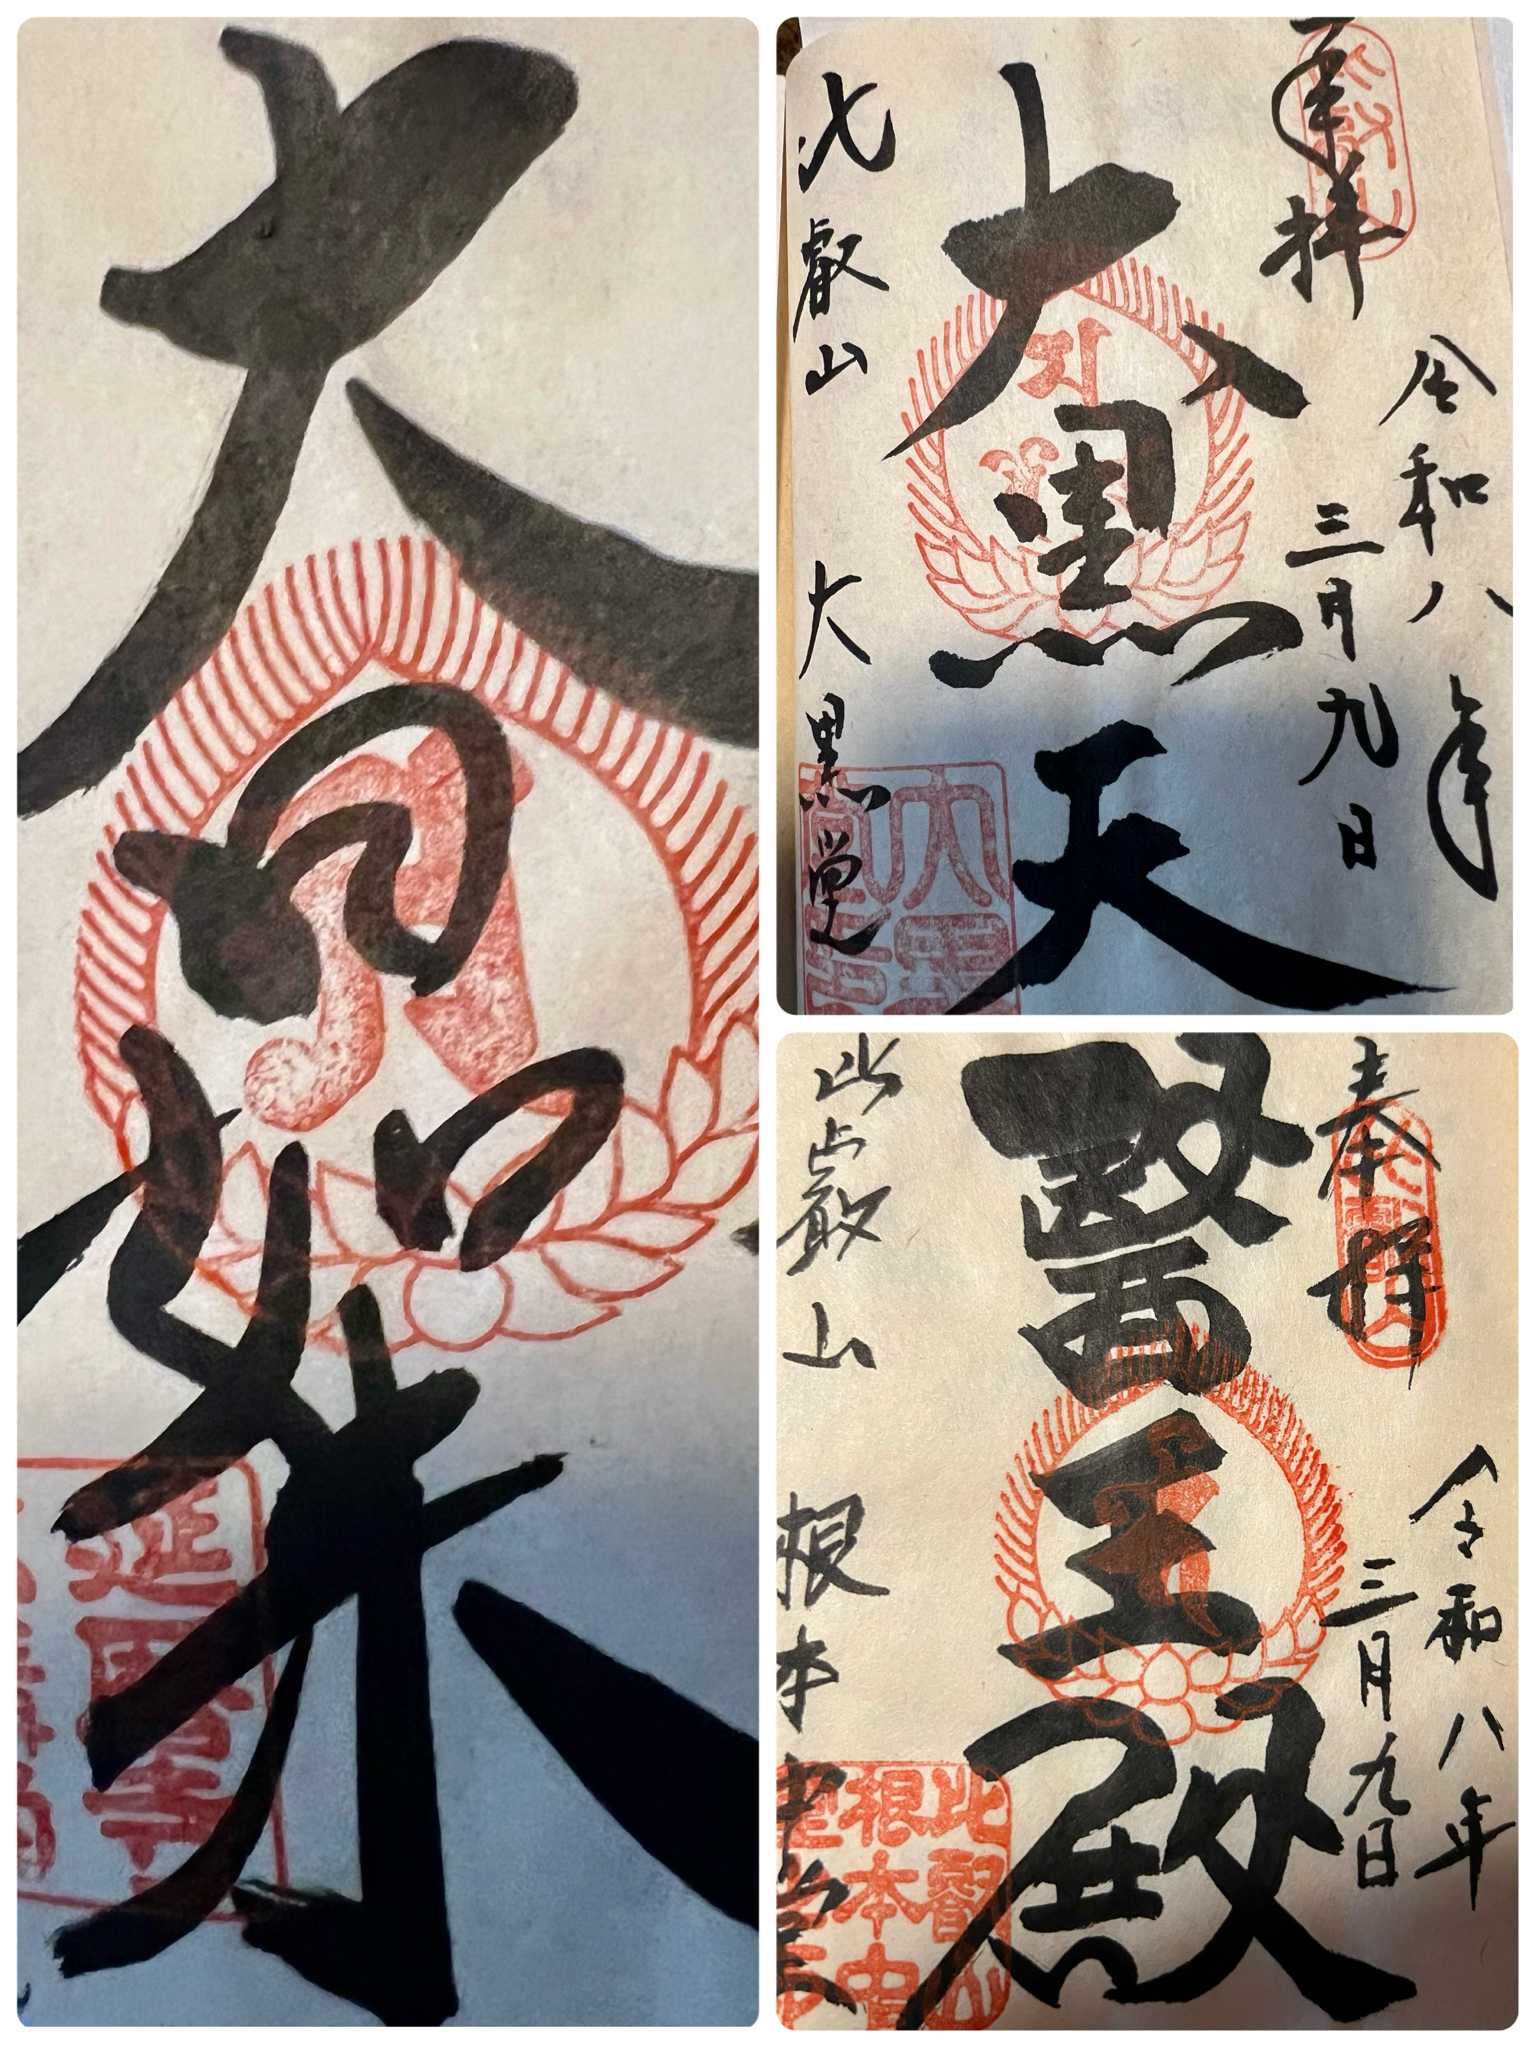 大日如来
延暦寺
奉拝
令和八年
三月九日
大黒天
比叡山 大黒堂
奉拝
令和八年
三月九日
醫王殿
比叡山 根本中堂
比叡山
根本中